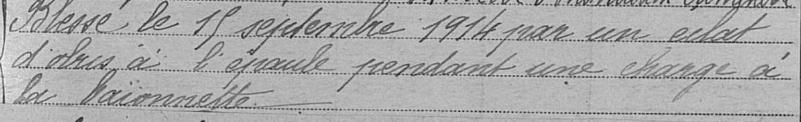 Blessé le 15 septembre 1914 par un éclat
d'obus à l'épaule pendant une charge à
la baïonnette